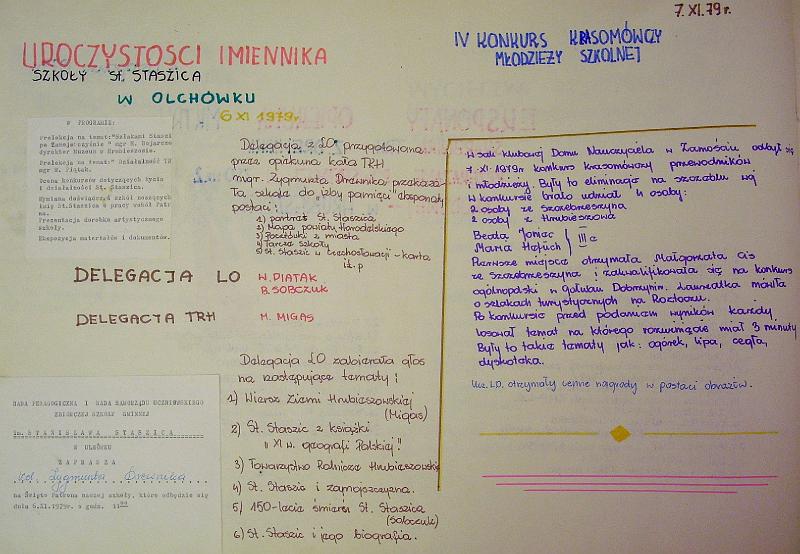 UROCZYSTOSCI IMIENNIKA
SZKOŁY St. STASZICA
W OLCHÓWKU
6 XI 1979r.
W PROGRAMIE:
Prelekcja na temat: "Szlakami Staszi
po Zamojszczyźnie" mgr
dyrektor Muzeum w Hrubieszowie.
Prelekcja na temat:" Działalność TR
mgr W. Piątek.
Scena konkursów dotyczących życia
i działalności St. Staszica.
Wymiana doświadczeń szkół noszących
imię St.Staszica w pracy wokół Patro
na.
Prezentacja dorobku artystycznego
szkoły.
Ekspozycja materiałów i dokumentów.
Delegacja z LO przygotowana
przez opiekuna koła TRH
mgr. Zygmunta Drewnika przekaza-
ła szkole do "izby pamięci" eksponaty
postaci:
1) portret St. Staszica
2) Mapa powiatu Horodelskiego
3) Pocztówki z miasta
4) Tarcza szkoły
5) St. Staszic w Czechosłowacji - karta
it.p
DELEGACJA LO W. PIATAK
B. SOBCZUK
DELEGACJA TRH M. MIGAS
Delegacja LO zabierała głos
na następujące tematy:
1) Wiersz Ziemi Hrubieszowskiej
(Migas)
2) St. Staszic z książki
" XI w. geografi Polskiej."
3) Towarzystwo Rolnicze Hrubieszowskie
4) St. Staszic i zamojszczyzna.
5) 150-lecie śmierci St. Staszica
(Sobczuk)
6) St. Staszic i jego biografia.
RADA PEDAGOGICZNA I RADA SAMORZĄDU UCZNIOWSKIEGO
ZBIORCZEJ SZKOŁY GMINNEJ
im. STANISŁAWA STASZICA
W
ZAPRASZA
Zygmunta Drewnika
na Święto Patrona naszej szkoły, które odbędzie się
dnia 6.XI.1979r. o godz. 11 00
7. XI. 79 r.
IV KONKURS KRASOMÓWCZY
MŁODZIEŻY SZKOLNEJ
W sali klubowej Domu Nauczyciela w Zamościu odbył się
7. XI - 1979r. konkurs krasomówczy przewodników
i młodzieży. Były to eliminacje na szczeblu woj
W konkursie brało udział 4 osoby:
2 osoby ze Szczebrzeszyna
2 osoby z Hrubieszowa
Beata Joniec
Maria } III c
Pierwsze miejsce otrzymała Małgorzata Cis
ze Szczebrzeszyna i zakwalifikowała się na konkurs
ogólnopolski w Golubiu Dobrzyniu. Laureatka mówiła
o szlakach turystycznych na Roztoczu.
Po konkursie przed podaniem wyników każdy
losował temat na którego rozwinięcie miał 3 minuty
Były to takie tematy jak: ogórek, lipa, cegła,
dyskoteka.
Ucz. L.O. otrzymały cenne nagrody w postaci obrazów.